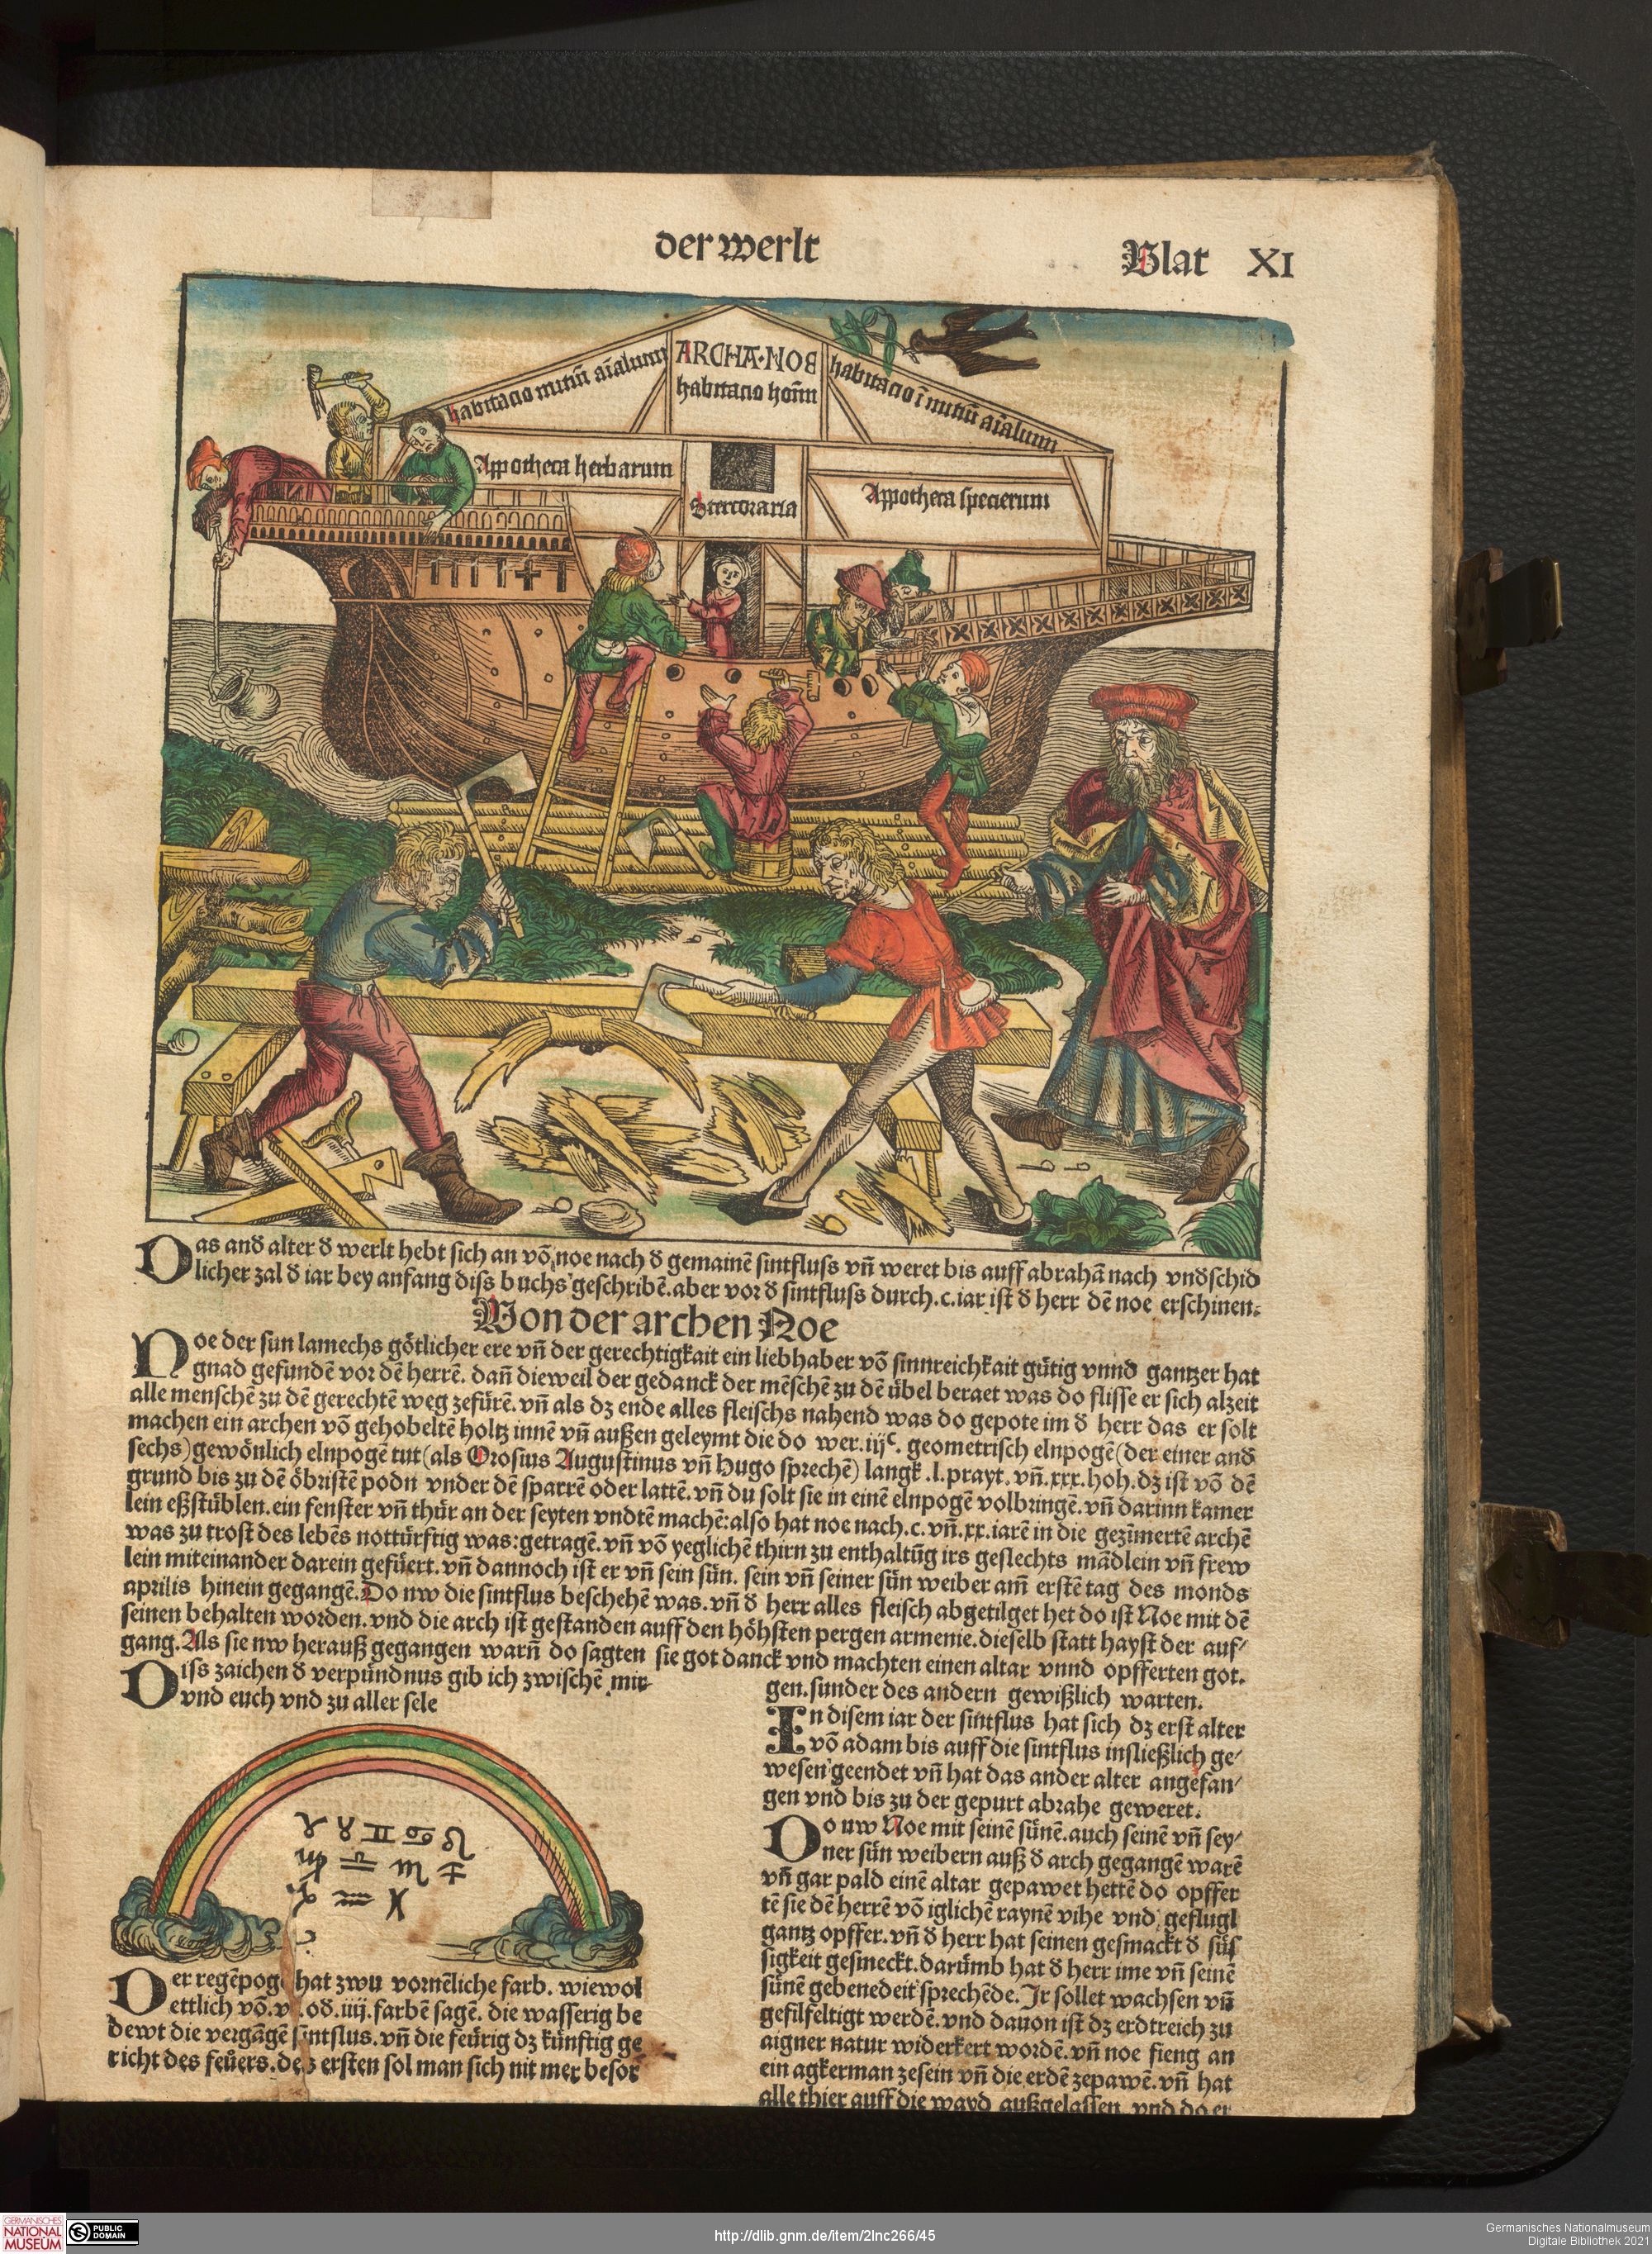 der werlt
Blat XI
habitacio mitiū aīalium
ARCHA·NOE
habitacio hoīm
habitacio īmitiū aīalium
Appotheca herbarum
Stercoraria
Appotheca specierum
Das and alter d werlt hebt sich an vō noe nach d gemainē sintfluss vn̄ weret bis auff abrahā nach vndschid
licher zal d iar bey anfang diss buchs geschribē. aber vor d sintfluss durch .c. iar ist d herr dē noe erschinen.
Von der archen Noe
Noe der sun lamechs götlicher ere vn̄ der gerechtigkait ein liebhaber vō sinnreichkait gütig vnnd gantzer hat
gnad gefundē vor dē herrē. dan̄ dieweil der gedanck der mēschē zu dē übel beraet was do flisse er sich alzeit
alle menschē zu dē gerechtē weg zefürē. vn̄ als dz ende alles fleischs nahend was do gepote im d herr das er solt
machen ein archen vō gehobeltē holtz innē vn̄ außen geleymt die do wer .iijᶜ. geometrisch elnpogē (der einer and
sechs) gewönlich elnpogē tut (als Orosius Augustinus vn̄ Hugo sprechē) langk .l. prayt. vn̄ .xxx. hoh. dz ist vō dē
grund bis zu dē öbristē podn vnder dē sparrē oder lattē. vn̄ du solt sie in einē elnpogē volbringē. vn̄ darinn kamer
lein eßstüblen. ein fenster vn̄ thür an der seyten vndtē machē: also hat noe nach .c. vn̄ .xx. iarē in die gezīmertē archē
was zu trost des lebēs nottürftig was: getragē. vn̄ vō yeglichē thirn zu enthaltūg irs geslechts mādlein vn̄ frew
lein miteinander darein gefüert. vn̄ dannoch ist er vn̄ sein sün. sein vn̄ seiner sün weiber am̄ erstē tag des monds
aprilis hinein gegangē. Do nw die sintflus beschehē was. vn̄ d herr alles fleisch abgetilget het do ist Noe mit dē
seinen behalten worden. vnd die arch ist gestanden auff den höhsten pergen armenie. dieselb statt hayst der auf/
gang. Als sie nw herauß gegangen warn̄ do sagten sie got danck vnd machten einen altar vnnd opfferten got.
Diss zaichen d verpündnus gib ich zwischē mir
vnd euch vnd zu aller sele
♈ ♉ ♊ ♋ ♌
♍ ♎ ♏ ♐
♑ ♒ ♓
Der regēpog hat zwu vornēliche farb. wiewol
ettlich vō .v. od. iiij. farbē sagē. die wasserig be
dewt die vergāgē sintflus. vn̄ die feürig dz künftig ge
richt des feüers. des ersten sol man sich nit mer besor
gen. sunder des andern gewißlich warten.
In disem iar der sintflus hat sich dz erst alter
vō adam bis auff die sintflus insließlich ge/
wesen geendet vn̄ hat das ander alter angefan/
gen vnd bis zu der gepurt abrahe geweret.
Do nw Noe mit seinē sünē. auch seinē vn̄ sey/
ner sün weibern auß d arch gegangē warē
vn̄ gar pald einē altar gepawet hettē do opffer
tē sie dē herrē vō iglichē raynē vihe vnd geflugl
gantz opffer. vn̄ d herr hat seinen gesmackt d süs
sigkeit gesmeckt. darümb hat d herr ime vn̄ seinē
sünē gebenedeit sprechēde. Ir sollet wachsen vn̄
gefilfeltigt werdē. vnd dauon ist dz erdtreich zu
aigner natur widerkert wordē. vn̄ noe fieng an
ein agkerman zesein vn̄ die erdē zepawē. vn̄ hat
alle thier auff die wayd außgelassen. vnd do er
GERMANISCHES
NATIONAL
MUSEUM
PUBLIC
DOMAIN
http://dlib.gnm.de/item/2Inc266/45
Germanisches Nationalmuseum
Digitale Bibliothek 2021